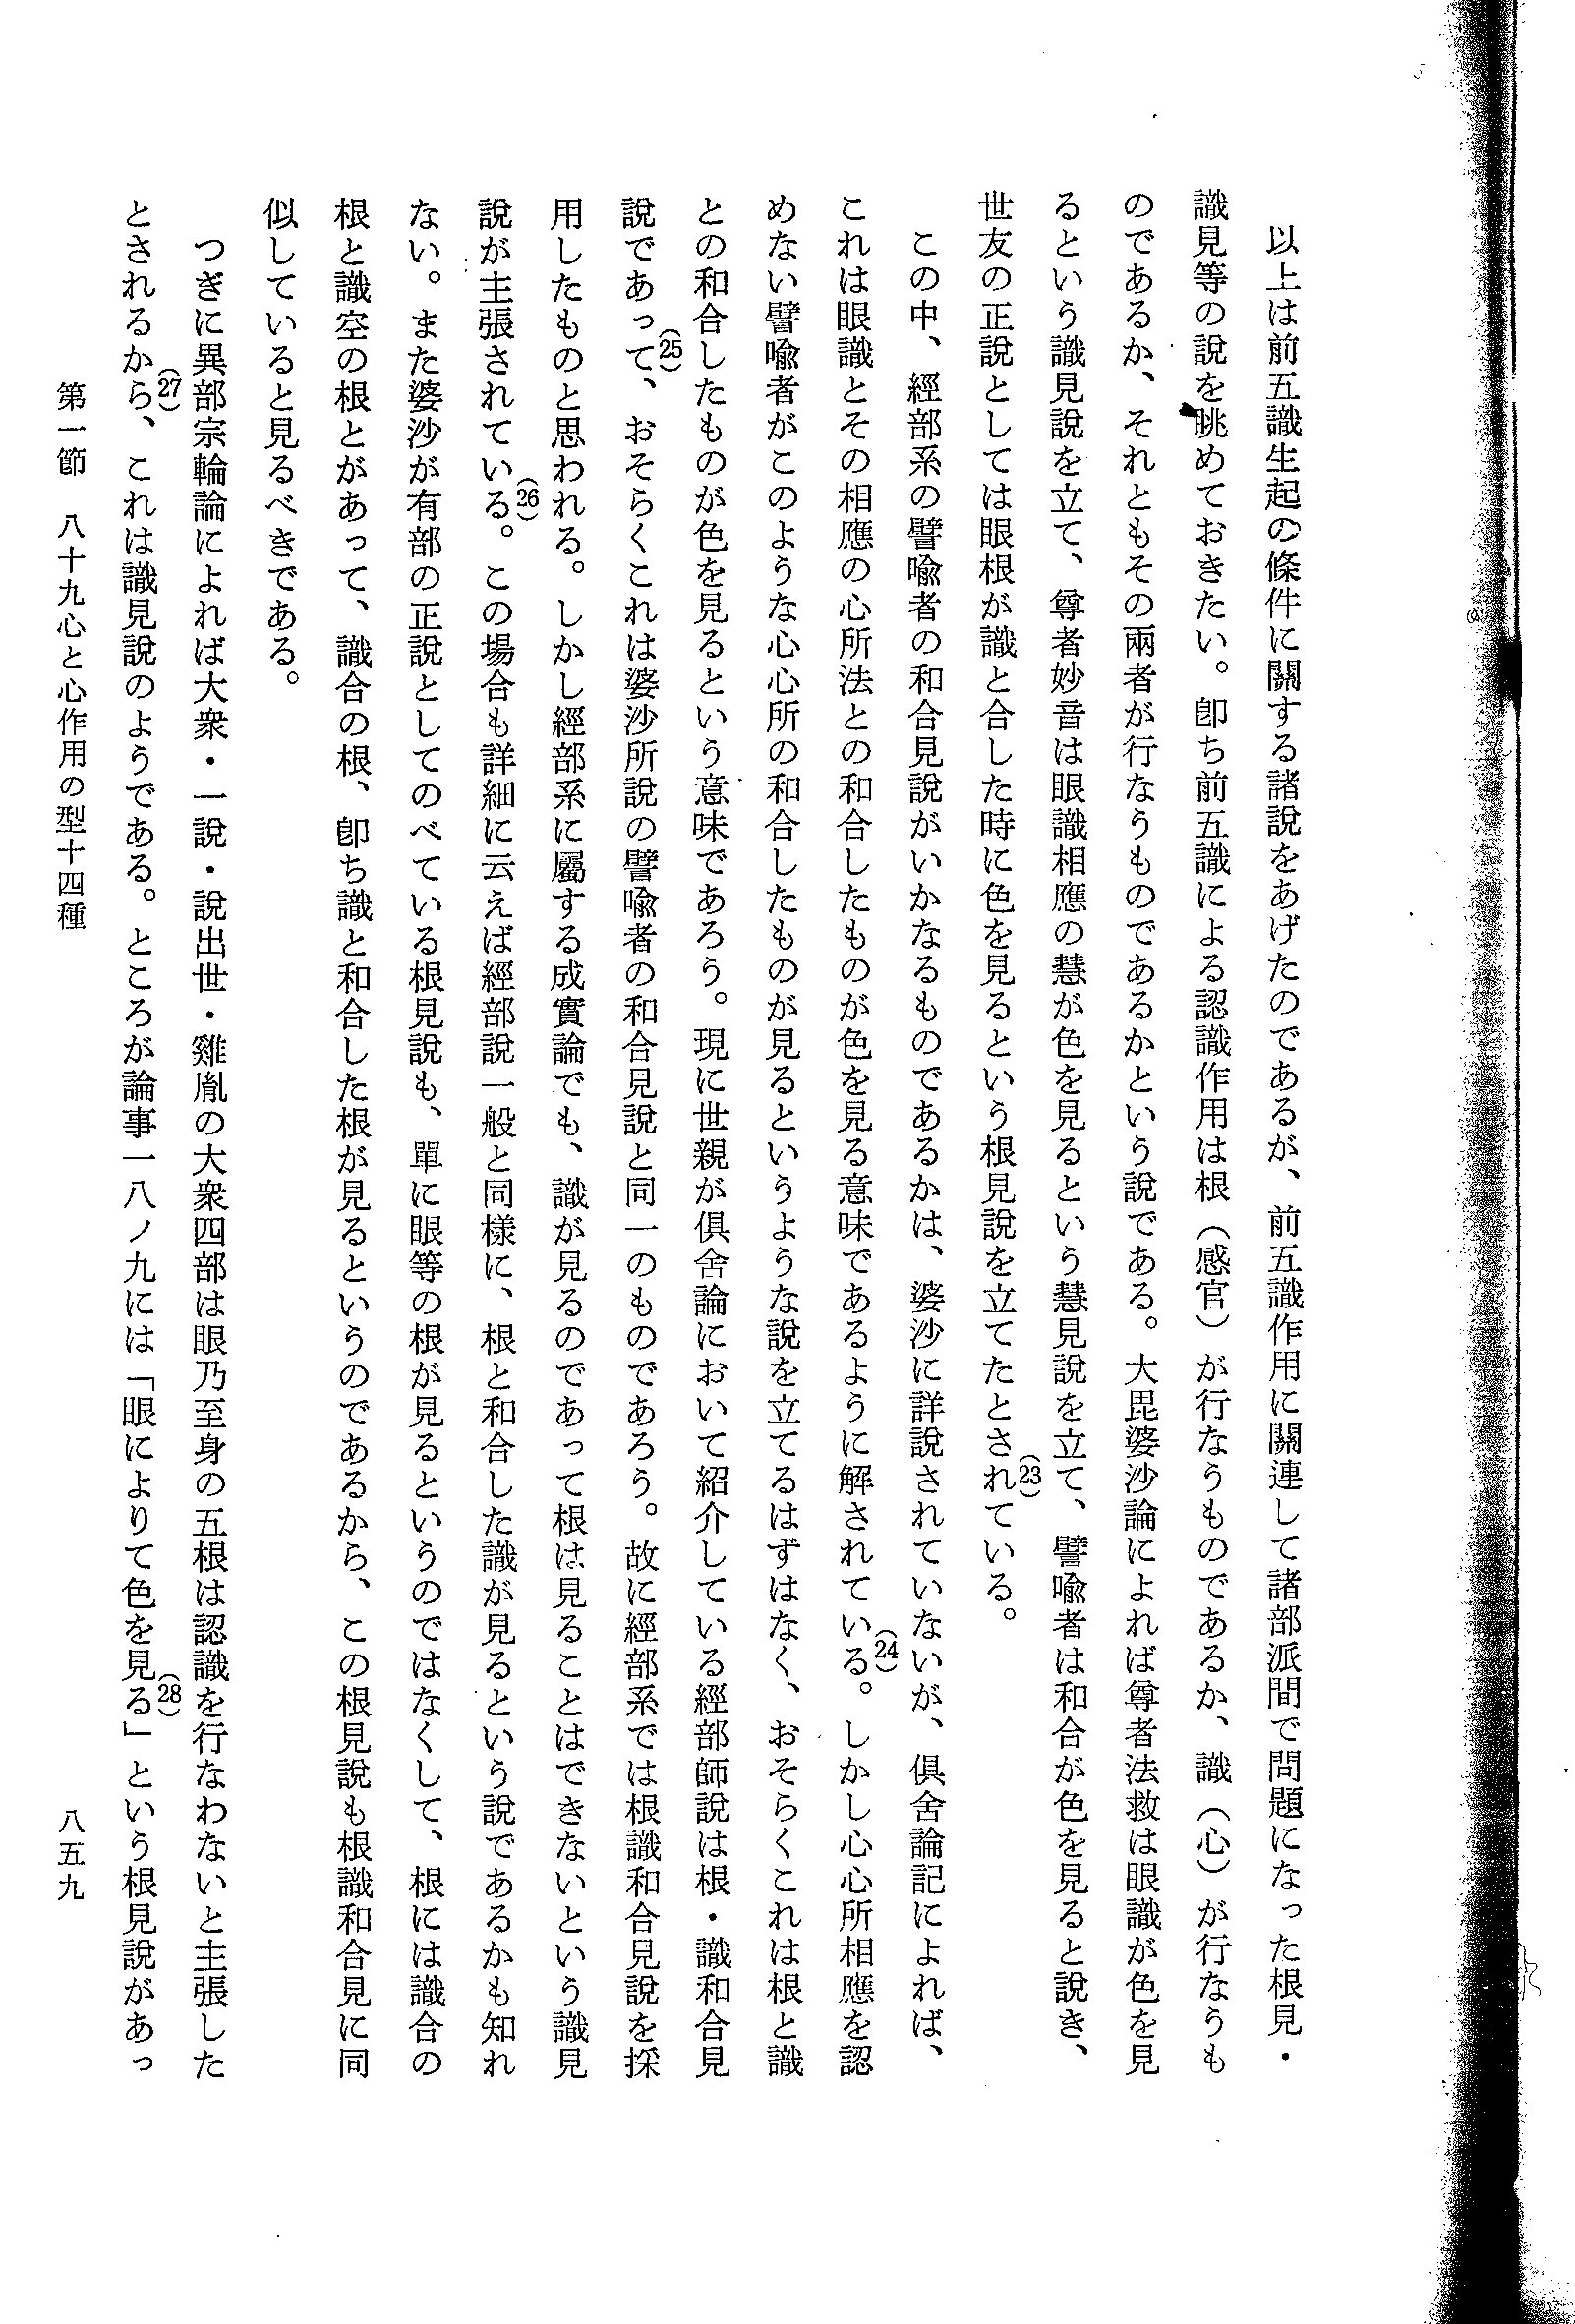 以上は前五識生起の條件に關する諸說をあげたのであるが、前五識作用に關連して諸部派間で問題になった根見・
識見等の說を眺めておきたい。卽ち前五識による認識作用は根（感官）が行なうものであるか、識（心）が行なうも
のであるか、それともその兩者が行なうものであるかという說である。大毘婆沙論によれば尊者法救は眼識が色を見
るという識見說を立て、尊者妙音は眼識相應の慧が色を見るという慧見說を立て、譬喩者は和合が色を見ると說き、
世友の正說としては眼根が識と合した時に色を見るという根見說を立てたとされている。(23)
この中、經部系の譬喩者の和合見說がいかなるものであるかは、婆沙に詳說されていないが、俱舍論記によれば、
これは眼識とその相應の心所法との和合したものが色を見る意味であるように解されている。(24)しかし心心所相應を認
めない譬喩者がこのような心心所の和合したものが見るというような說を立てるはずはなく、おそらくこれは根と識
との和合したものが色を見るという意味であろう。現に世親が俱舍論において紹介している經部師說は根・識和合見
說であって、(25)おそらくこれは婆沙所說の譬喩者の和合見說と同一のものであろう。故に經部系では根識和合見說を採
用したものと思われる。しかし經部系に屬する成實論でも、識が見るのであって根は見ることはできないという識見
說が主張されている。(26)この場合も詳細に云えば經部說一般と同様に、根と和合した識が見るという說であるかも知れ
ない。また婆沙が有部の正說としてのべている根見說も、單に眼等の根が見るというのではなくして、根には識合の
根と識空の根とがあって、識合の根、卽ち識と和合した根が見るというのであるから、この根見說も根識和合見に同
似していると見るべきである。
つぎに異部宗輪論によれば大衆・一說・說出世・雞胤の大衆四部は眼乃至身の五根は認識を行なわないと主張した
とされるから、(27)これは識見說のようである。ところが論事一八ノ九には「眼によりて色を見る」(28)という根見說があっ
第一節　八十九心と心作用の型十四種　八五九